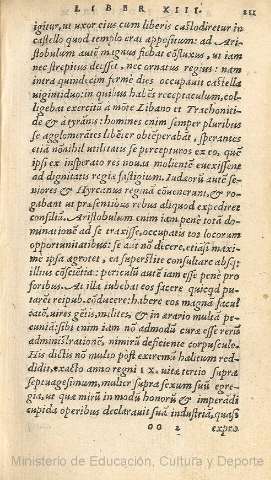 LIBER XIII. 211
igitur, ut uxor eius cum liberis custodiretur in
castello quod templo erat appositum: ad Ari-
stobulum autē magnus fiebat cōfluxus, ut iam
nec strepitus deesset, nec ornatus regius: nam
intra quindecim fermè dies occupauit castella
uigintiduo: in quibus habēs receptaculum, col-
ligebat exercitū à mōte Libano et Trachoniti-
de & à tyrānis: homines enim semper pluribus
se agglomerātes libēter obtēperabāt, sperantes
etiā nōnihil utilitatis se percepturos ex eo, quē
ipsi ex insperato res nouas molientē euexissent
ad dignitatis regiæ fastigium. Iudæorū autē se-
niores & Hyrcanus reginā cōuenerant, & ro-
gabant ut præsentibus rebus aliquod expediret
consiliū. Aristobulum enim iam penè totā do-
minationē ad se traxisse, occupatis tot locorum
opportunitatibus: se aūt nō decere, etiāsi maxi-
me ipsa ægrotet, ea superstite consultare absq;
illius cōscientia: periculū autē iam esse penè pro
foribus. At illa iubebat eos facere quicqd pu-
tarēt reipub. cōducere: habere eos magnā facul
tatē, uires gētis, milites, & in ærario multā pe-
cuniā: sibi enim iam nō admodū curæ esse rerū
administrationē, nimirū deficiente corpusculo.
His dictis nō multo post extremū halitum red-
didit, exacto anno regni IX. uitæ tercio supra
septuagesimum, mulier supra sexum suū egre-
gia, ut quæ mirū in modū honorū & imperādi
cupida operibus declarauit suā industriā, quasi
OO 2 expro
Ministerio de Educación, Cultura y Deporte